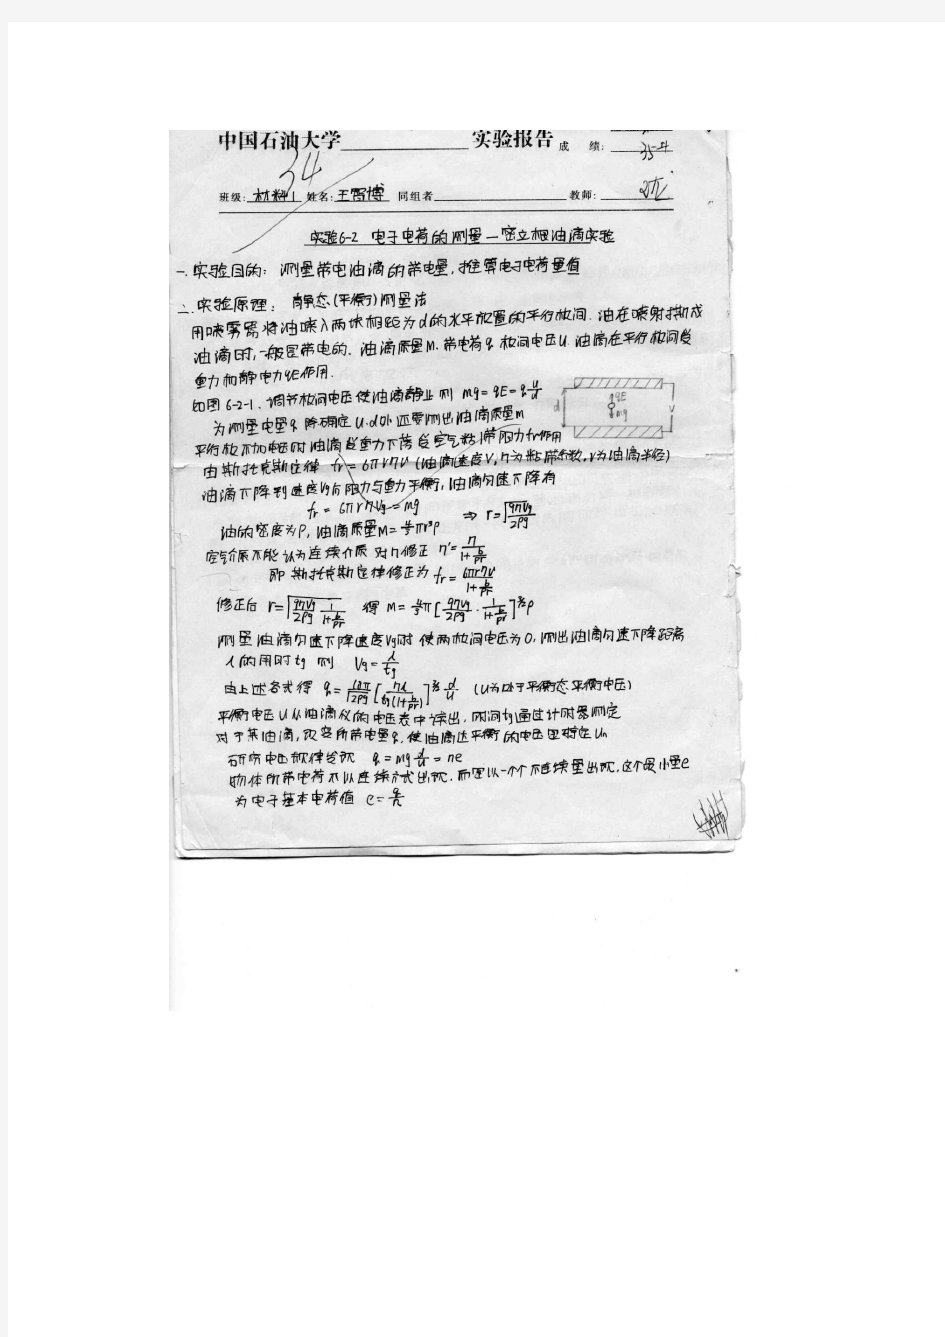 中国石油大学 实验报告 成 绩:
34
班级: 材料1 姓名: 王智博 同组者 教师:
实验6-2 电子电荷的测量—密立根油滴实验
一、实验目的: 测量带电油滴的带电量,推算电子电荷量值
二、实验原理: 静态(平衡)测量法
用喷雾器将油喷入两块相距为d的水平放置的平行板间. 油在喷射撕成
油滴时,一般是带电的. 油滴质量m. 带电荷q. 板间电压U. 油滴在平行板间受
重力和静电力qE作用.
如图6-2-1. 调节板间电压使油滴静止 则 mg=qE=q\frac{U}{d}
d qE mg
为测量电量q 除确定U.d外 还要测出油滴质量m
平行板不加电压时油滴受重力下落受空气粘滞阻力fr作用
由斯托克斯定律 fr=6πrηv (油滴速度v,η为粘滞系数,r为油滴半径)
油滴下降到速度Vg后阻力与重力平衡,油滴匀速下降有
fr=6πrηVg=mg ⇒ r=\sqrt{\frac{9ηVg}{2ρg}}
油的密度为ρ, 油滴质量m=\frac{4}{3}πr³ρ
空气介质不能认为连续介质 对η修正 η'=\frac{η}{1+\frac{b}{pr}}
即 斯托克斯定律修正为 fr=\frac{6πrηv}{1+\frac{b}{pr}}
修正后 r=\sqrt{\frac{9ηVg}{2ρg}\frac{1}{1+\frac{b}{pr}}} 得 m=\frac{4}{3}π[\frac{9ηVg}{2ρg}·\frac{1}{1+\frac{b}{pr}}]^{3/2}ρ
测量油滴匀速下降速度Vg时 使两板间电压为0,测出油滴匀速下降距离
l的用时tg 则 Vg=\frac{l}{tg}
由上述各式得 q=\frac{18π}{\sqrt{2ρg}}[\frac{ηl}{tg(1+\frac{b}{pr})}]^{3/2}\frac{d}{U} (U为处于平衡态平衡电压)
平衡电压U从油滴仪的电压表中读出, 时间tg通过计时器测定
对于某油滴,改变所带电量q,使油滴达平衡的电压是特定Un
研究电压规律发现 q=mg\frac{d}{U}=ne
物体所带电荷不以连续方式出现,而是以一个个不连续量出现,这个最小量e
为电子基本电荷值 e=\frac{q}{n}